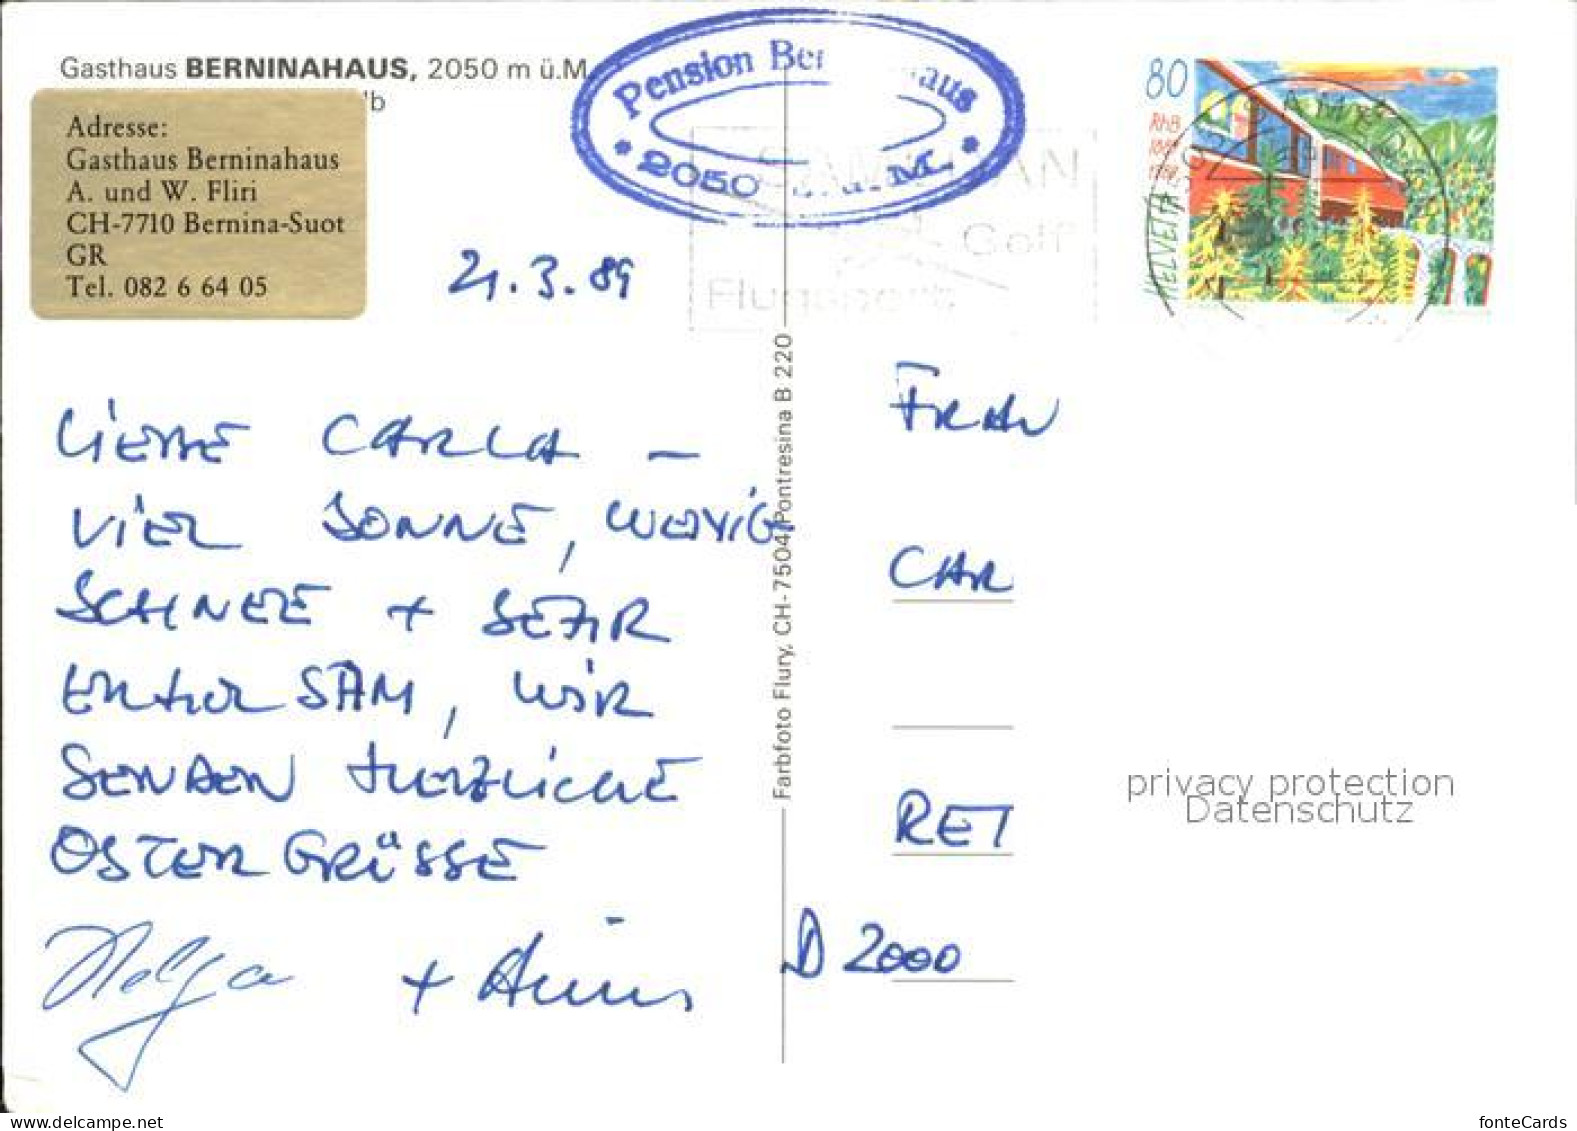 Gasthaus BERNINAHAUS, 2050 m ü.M
lb
Adresse:
Gasthaus Berninahaus
A. und W. Fliri
CH-7710 Bernina-Suot
GR
Tel. 082 6 64 05
Pension Ber aus
* 2050 ü.M. *
SAMEDAN
Golf
Flugsport
80
RhB
HELVETIA
21.3.89
LIEBE CARLA –
VIEL SONNE, WENIG
SCHNEE + SEHR
ERHOLSAM, WIR
SENDEN HERZLICHE
OSTERGRÜSSE
Helga + Heinz
Farbfoto Flury, CH-7504 Pontresina B 220
FRAU
CAR
RET
D 2000
privacy protection
Datenschutz
www.delcampe.net
fonteCards